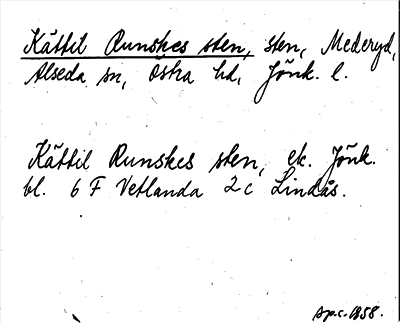 Kättil Runskes sten, sten, Mederyd,
Alseda sn, Östra hd, Jönk. l.
Kättil Runskes sten, ek. Jönk.
bl. 6 F Vetlanda 2 c Lindås.
Sp.c. 1858.